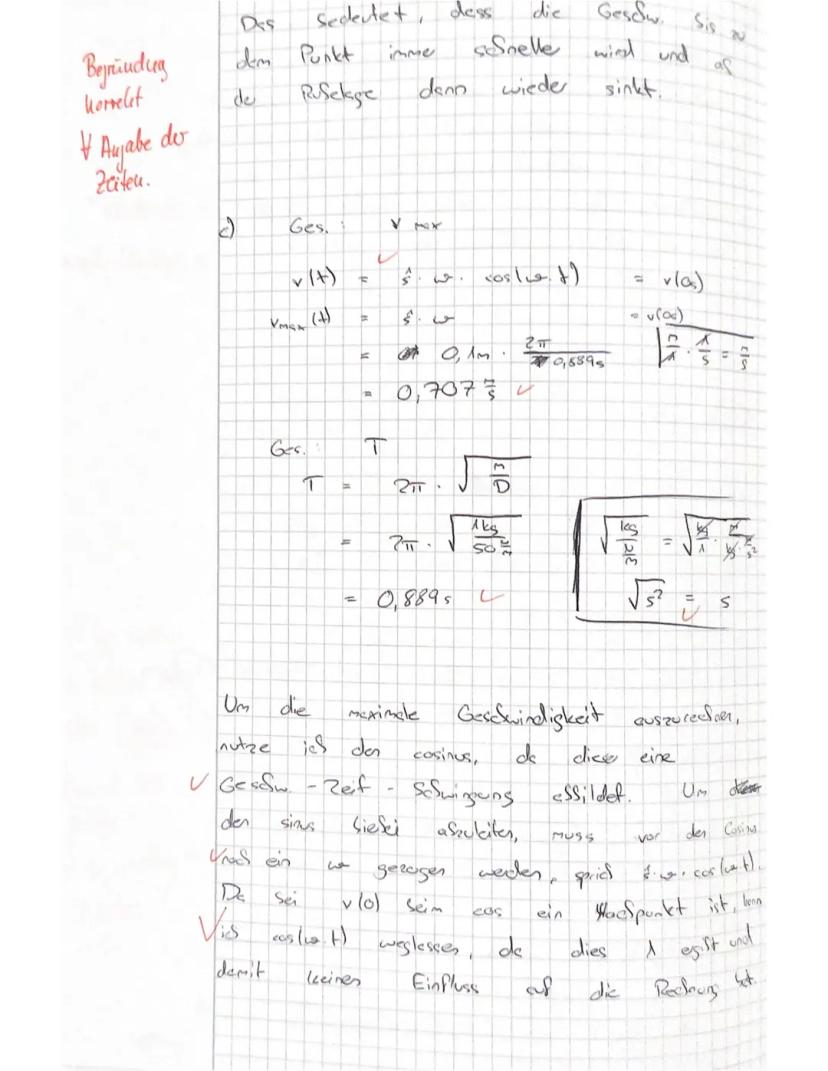 Das bedeutet, dass die Geschw. bis zu
dem Punkt imme schnelle wird und ab
de Ruhelage dann wieder sinkt.
Begründung
korrekt
∀ Angabe der
Zeiten.
c) Ges. : v max
v(t) = ŝ · ω · cos(ω · t) = v(0s)
vmax (t) = ŝ · ω = v(0s)
= 0,1m · 2π / 0,889s
m/1 · 1/s = m/s
= 0,707 m/s
Ges. : T
T = 2π · √(m/D)
= 2π · √(1kg / 50 N/m)
√(kg / N/m) = √(kg/1 · m / kg · m/s²)
= 0,889s
√s² = s
Um die maximale Geschwindigkeit auszurechnen,
nutze ich den cosinus, da diese eine
Geschw. - Zeit - Schwingung abbildet. Um
den sinus hiebei abzuleiten, muss vor den Cosinus
noch ein ω gezogen werden, sprich ŝ · ω · cos(ω·t).
Da bei v(0) beim cos ein Hochpunkt ist, kann
ich cos(ω·t) weglassen, da dies 1 egibt und
damit keinen Einfluss auf die Rechnung hat.